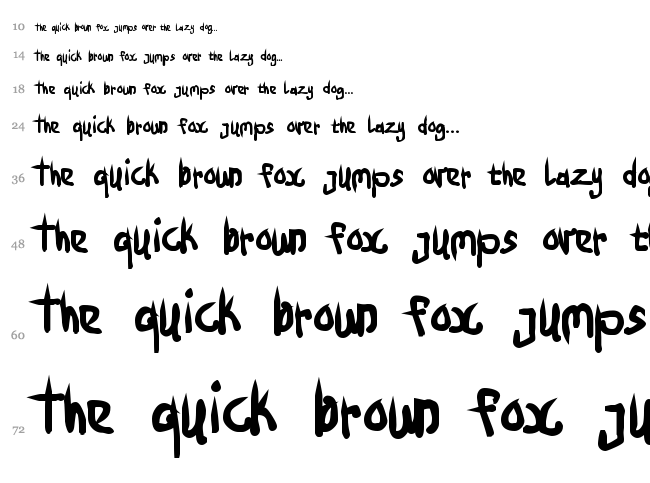 10 the quick brown fox jumps over the lazy dog...
14 the quick brown fox jumps over the lazy dog...
18 the quick brown fox jumps over the lazy dog...
24 the quick brown fox jumps over the lazy dog...
36 the quick brown fox jumps over the lazy do
48 the quick brown fox jumps over t
60 the quick brown fox jumps
72 the quick brown fox ju